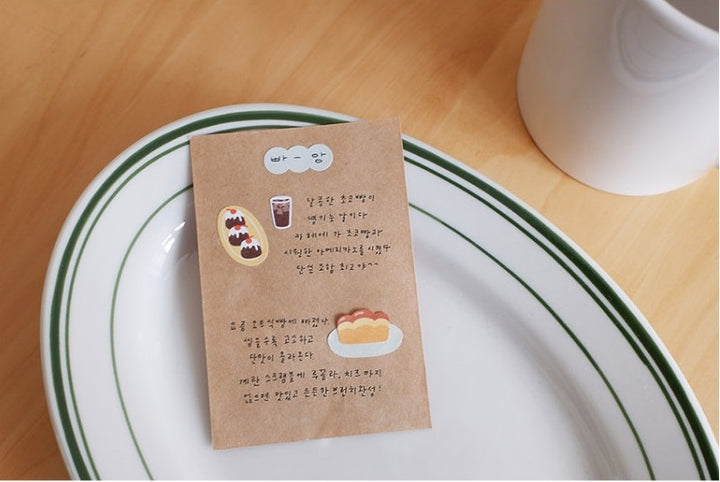 빠 - 앙
달콤한 초코빵이
땡기는 날이다
카페에 가 초코빵과
시원한 아메리카노를 시켰다
단쓴 조합 최고야~~
요즘 오트식빵에 빠졌다
씹을수록 고소하고
단맛이 올라온다.
계란 스크램블에 루꼴라, 치즈 까지
얹으면 맛있고 든든한 브런치완성!